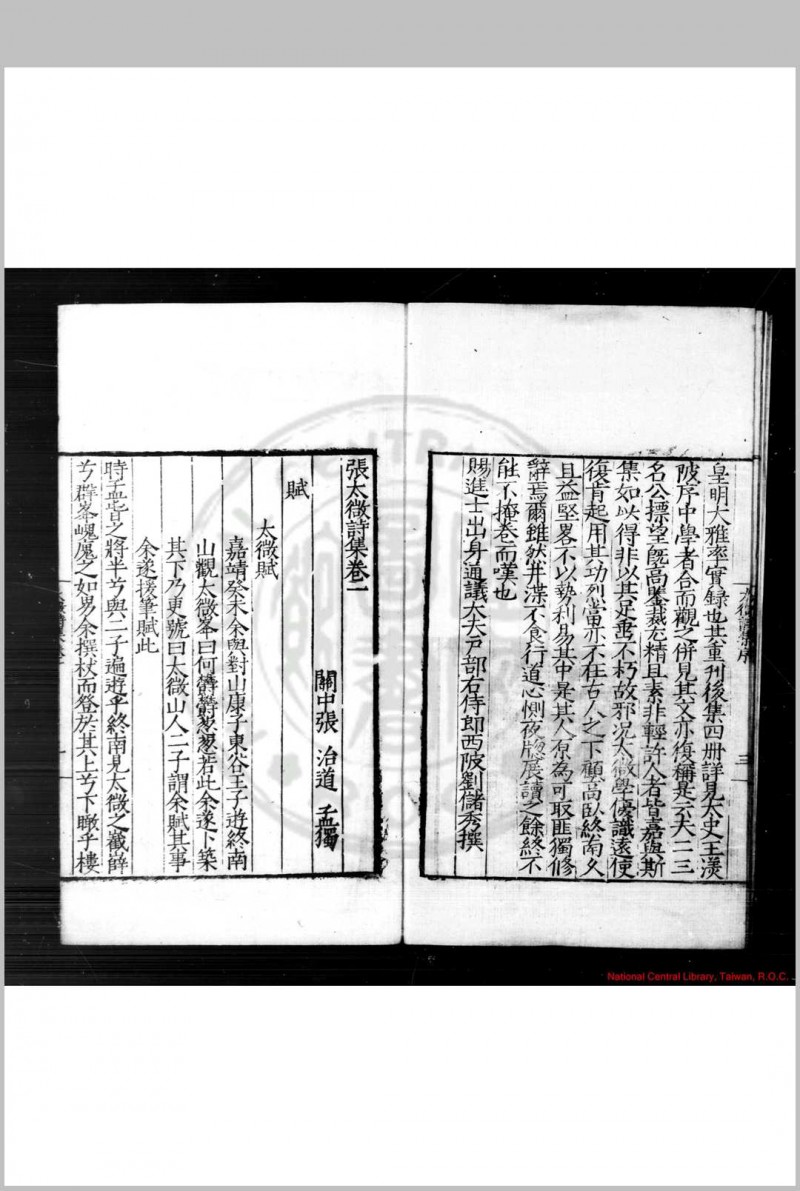 皇明大雅率實録也其重刊後集四册詳見太史王渼
陂序中學者合而觀之併見其文亦復稱是云夫二三
名公摽望旣高鑒裁尤精且素非輕許人者皆嘉與斯
集如以得非以其足垂不朽故邪況太微學優識遠使
復肯起用其功列當亦不在古人之下顧高臥終南久
且益堅畧不以勢利易其中是其人原為可取匪獨修
辭焉爾雖然井渫不食行道心惻夜牕展讀之餘終不
能不掩卷而嘆也
賜進士出身通議大夫戸部右侍郎西陂劉儲秀撰
太微詩集序
三
張太微詩集卷一
關中張 治道 孟獨
賦
太微賦
嘉靖癸未余與對山康子東谷王子遊終南
山觀太微峯曰何欝欝葱葱若此余遂卜築
其下乃更號曰太微山人二子謂余賦其事
余遂援筆賦此
時孟昔之將半兮與二子遍遊乎終南見太微之巀嶭
兮群峯嵬嵬之如男余撰杖而登於其上兮下瞰乎樓
一
National Central Library, Taiwan, R.O.C.